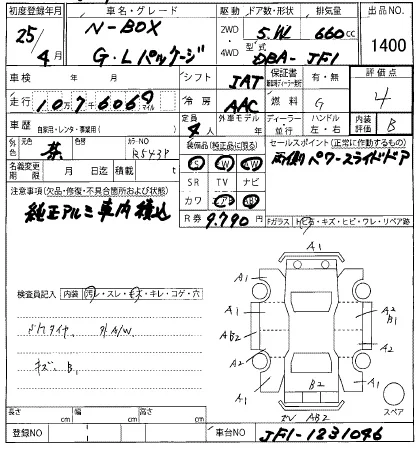 初度登録年月 車名・グレード 駆動 ドア数・形状 排気量 出品NO
25/4月 N-BOX 2WD 5.W 660cc 1400
G・Lパッケージ 4WD 型式 DBA-JF1
車検 年 月 シフト IAT 保証書 有・無 評価点
走行 10万7千606 マイル 冷房 AAC 燃料 G 4
車歴 自家用・レンタ・事業用( ) 定員 4人 外車モデル ディーラー 並行 ハンドル 左・右 内装評価 B
外色 元色 茶 色替 カラーNO R543P 装備品(純正品に限る) セールスポイント(正常に作動するもの)
名義変更期限 月 日迄 積載 t S W W 両側パワースライドドア
注意事項(欠品・修復・不具合箇所および状態) SR TV ナビ
純正アルミ車内積込 カワ エア AB
R券 9.790円 Fガラス トビ石・キズ・ヒビ・ワレ・リペア跡
検査員記入 内装 汚レ・スレ・キズ・キレ・コゲ・穴
A1
A1 A1
A1 A2
B1
AB2 A2
A2 A2
A1 B2 A1
AB2
外A/W
キズ B1
スペア
長さ cm 幅 cm 高さ cm
登録NO 車台NO JF1-1231046